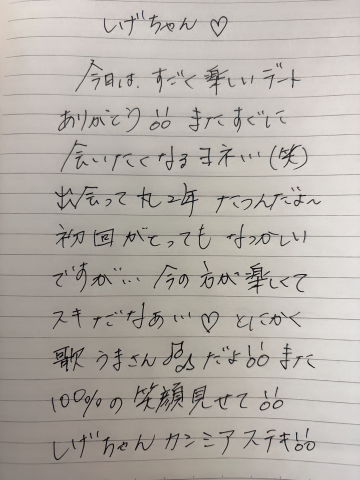 しげちゃん♡
今日は、すごく楽しいデート
ありがとう!! またすぐに
会いたくなるヨネ…(笑)
出会って丸2年 たつんだよ〜
初回がとってもなつかしい
ですが… 今の方が楽しくて
スキだなぁ…♡ とにかく
歌うまさん♫だよ!! また
100%の笑顔見せて!!
しげちゃんカンミアステキ!!